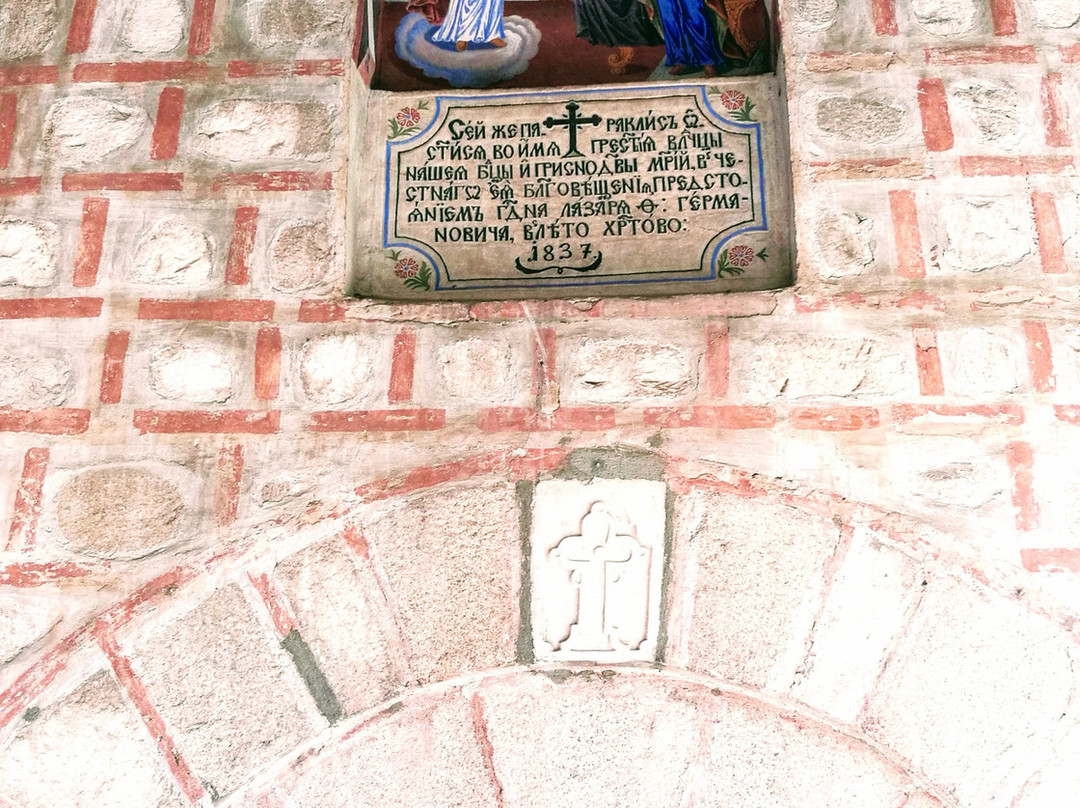 Сей же па- раклисъ ѿ
стисѧ, во имѧ прест҃ыѧ вл҃чцы
нашеѧ бц҃ы и присно дв҃ы мр҃іи, в че-
стнагѡ еѧ̀ благовѣщеніѧ, предсто-
ѧніемъ г҃дна лазарѧ ѳ: герма-
новича, в лѣто хр҃тово:
1837